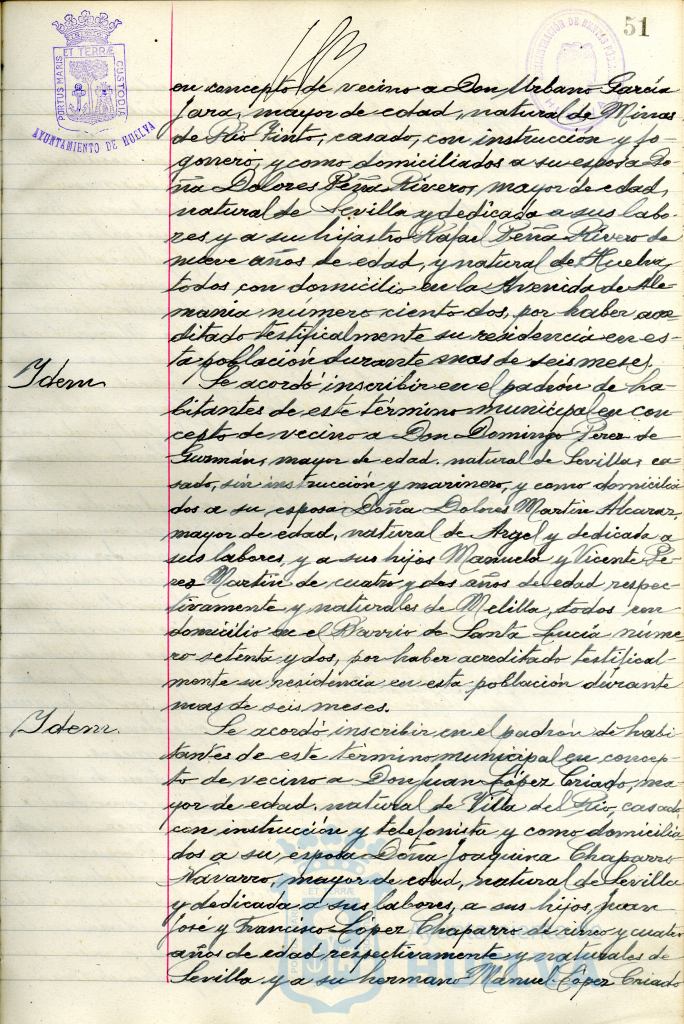 51
PORTUS MARIS ET TERRÆ CUSTODIA
AYUNTAMIENTO DE HUELVA
en concepto de vecino a Don Urbano García
Jara, mayor de edad, natural de Minas
de Rio Tinto, casado, con instrucción y fo-
gonero, y como domiciliados a su esposa Do-
ña Dolores Peña Rivero, mayor de edad,
natural de Sevilla y dedicada a sus labo-
res, y a su hijastro Rafael Peña Rivero de
nueve años de edad, y natural de Huelva,
todos con domicilio en la Avenida de Ale-
mania número ciento dos, por haber acre-
ditado testificalmente su residencia en es-
ta población durante mas de seis meses.
Ydem
Se acordó inscribir en el padrón de ha-
bitantes de este término municipal en con-
cepto de vecino a Don Domingo Perez de
Guzmán, mayor de edad, natural de Sevilla, ca-
sado, sin instrucción y marinero, y como domicilia-
dos a su esposa Doña Dolores Martin Alcaraz,
mayor de edad, natural de Argel y dedicada a
sus labores, y a sus hijos Manuela y Vicente Pé-
rez Martin de cuatro y dos años de edad respec-
tivamente y naturales de Melilla, todos con
domicilio en el Barrio de Santa Lucía núme-
ro setenta y dos, por haber acreditado testifical-
mente su residencia en esta población durante
mas de seis meses.
Ydem.
Se acordó inscribir en el padrón de habi-
tantes de este término municipal en concep-
to de vecino a Don Juan López Criado, ma-
yor de edad, natural de Villa del Rio, casado,
con instrucción y telefonista y como domicilia-
dos a su esposa Doña Joaquina Chaparro
Navarro, mayor de edad, natural de Sevilla
y dedicada a sus labores, a sus hijos, Juan
José y Francisco López Chaparro de cinco y cuatro
años de edad respectivamente y naturales de
Sevilla y a su hermano Manuel López Criado